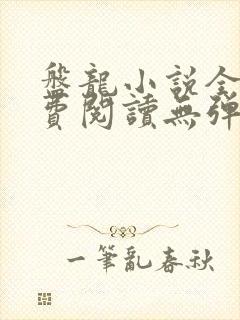 盤龍小说全
費閱讀無彈
一筆亂春秋